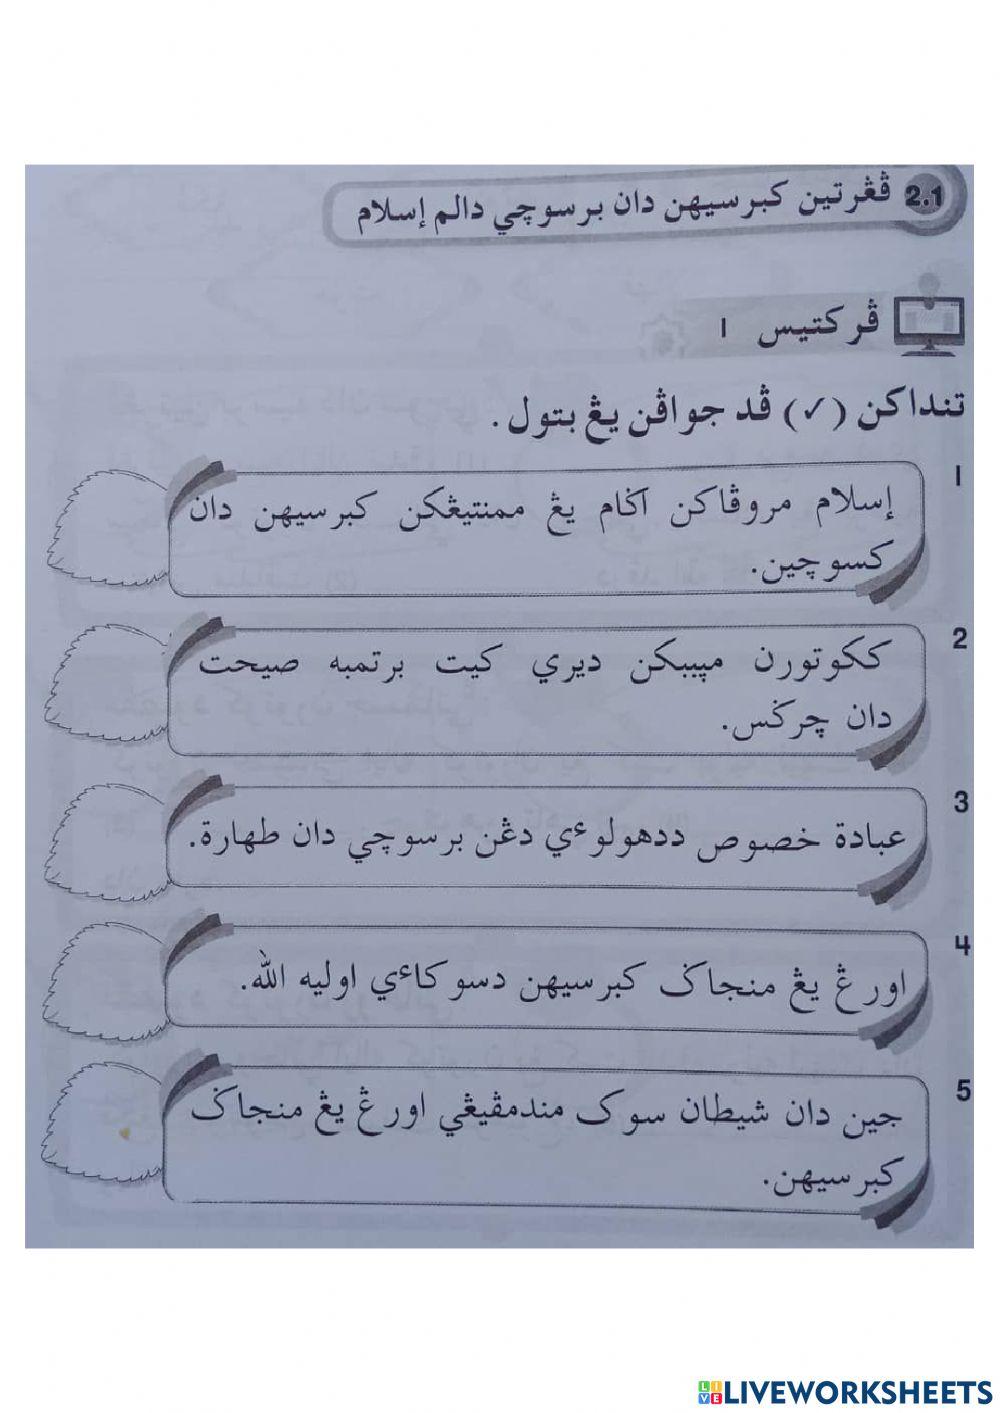 2.1 ڤڠرتين كبرسيهن دان برسوچي دالم إسلام
ڤركتيس ١
تنداكن (✓) ڤد جواڤن يڠ بتول.
١
إسلام مروڤاكن اݢام يڠ ممنتيڠكن كبرسيهن دان
كسوچين.
2
ككوتورن مڽببكن ديري كيت برتمبه صيحت
دان چرݢس.
3
عبادة خصوص ددهولوءي دڠن برسوچي دان طهارة.
4
اورڠ يڠ منجاݢ كبرسيهن دسوكاءي اوليه الله.
5
جين دان شيطان سوک مندمڤيڠي اورڠ يڠ منجاݢ
كبرسيهن.
LIVEWORKSHEETS